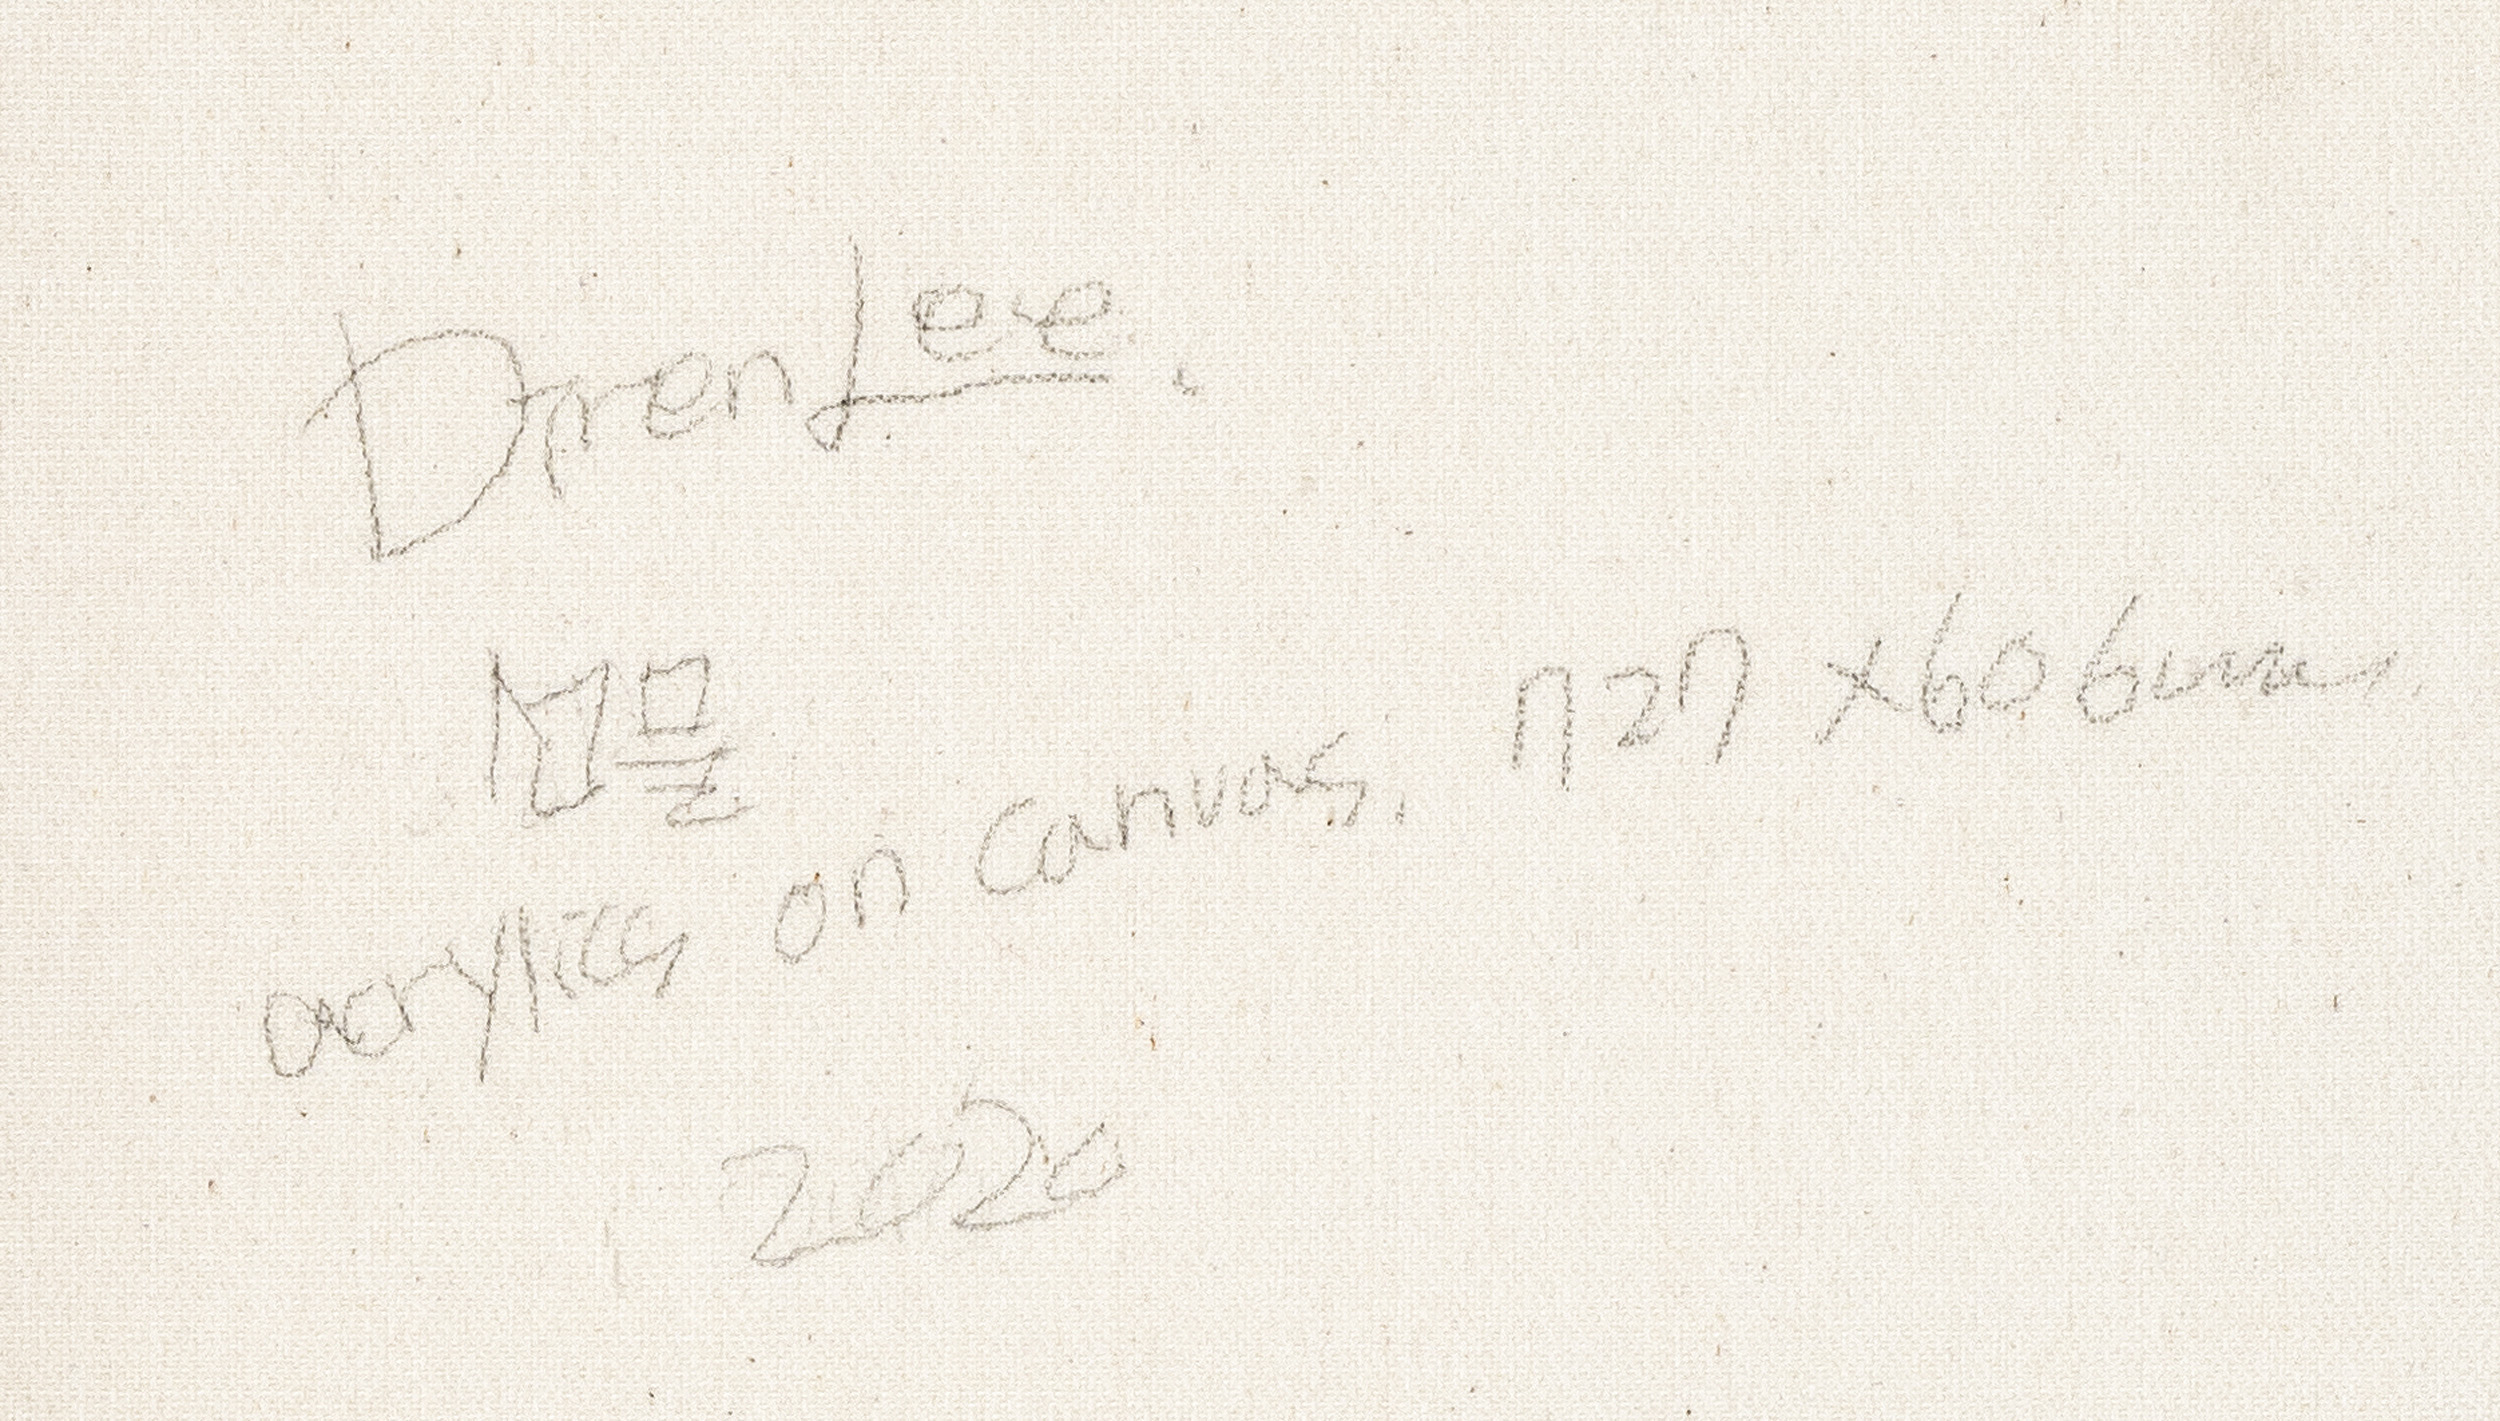 Diren Lee.
acrylics on canvas, 727 x 606mm,
2020